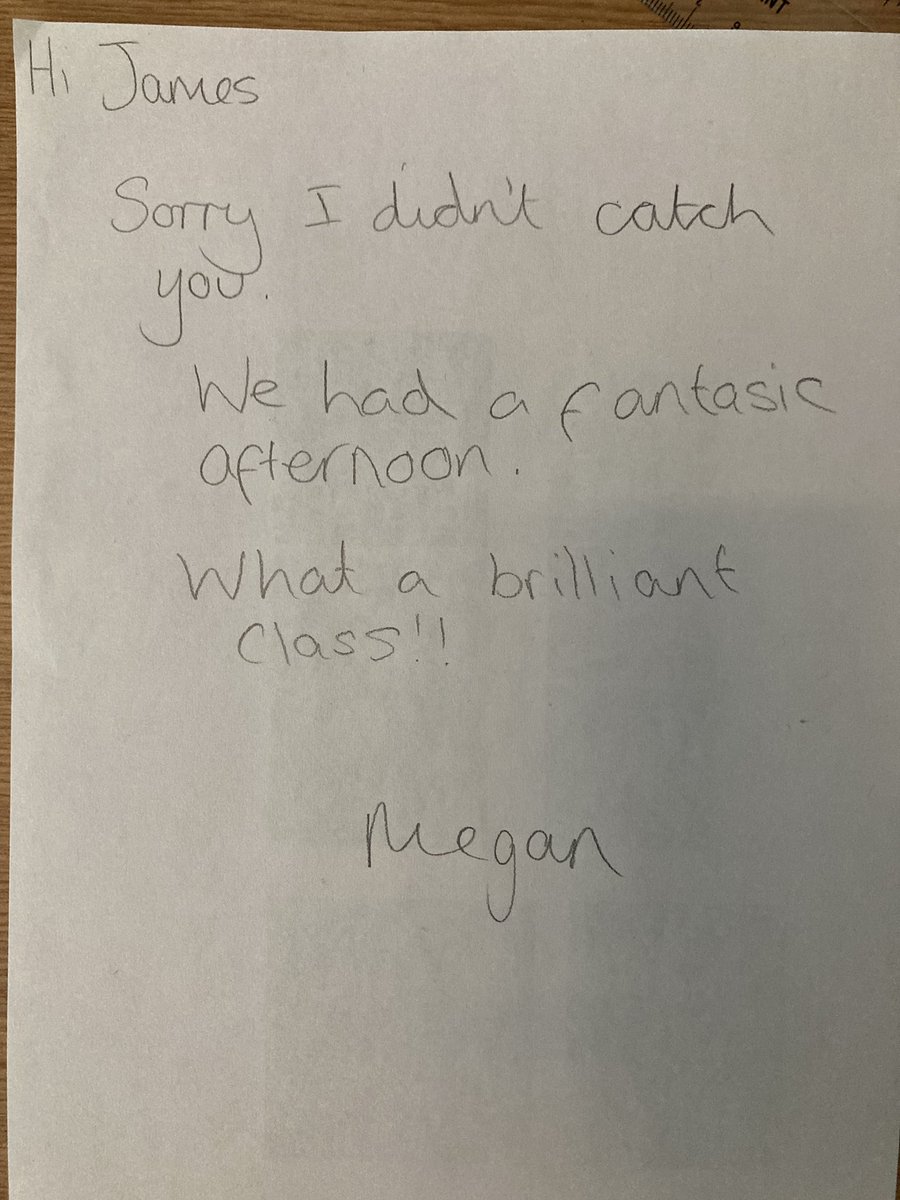 Hi James
Sorry I didn't catch
you.
We had a fantasic
afternoon.
What a brilliant
class!!
Megan